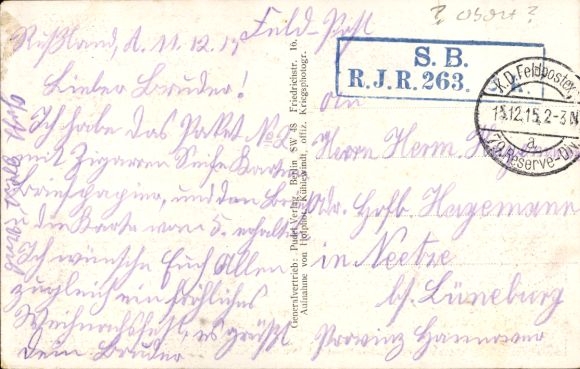 ? Obow ?
Feld-Post
Rußland, d. 11.12.15
S. B.
R.J.R. 263.
K.D. Feldpostex.
13.12.15. 2-3 N
a
79. Reserve-Div.
Lieber Bruder!
Ich habe das Paket No 5
mit Zigarren Seife Karten
Briefpapier, und den
die Karte vom 5. erhalten
Ich wünsche Euch Allen
zugleich ein fröhliches
Weihnachtsfest, es grüßt
Dein Bruder
Generalvertrieb: Pudel Verlag, Berlin SW 48 Friedrichstr. 16.
Aufnahme von Hofphot. Kühlewindt, offiz. Kriegsphotogr.
An
Herrn Herm.
Adr. Hofb. Hagemann
in Neetze
bh. Lüneburg
Provinz Hannover